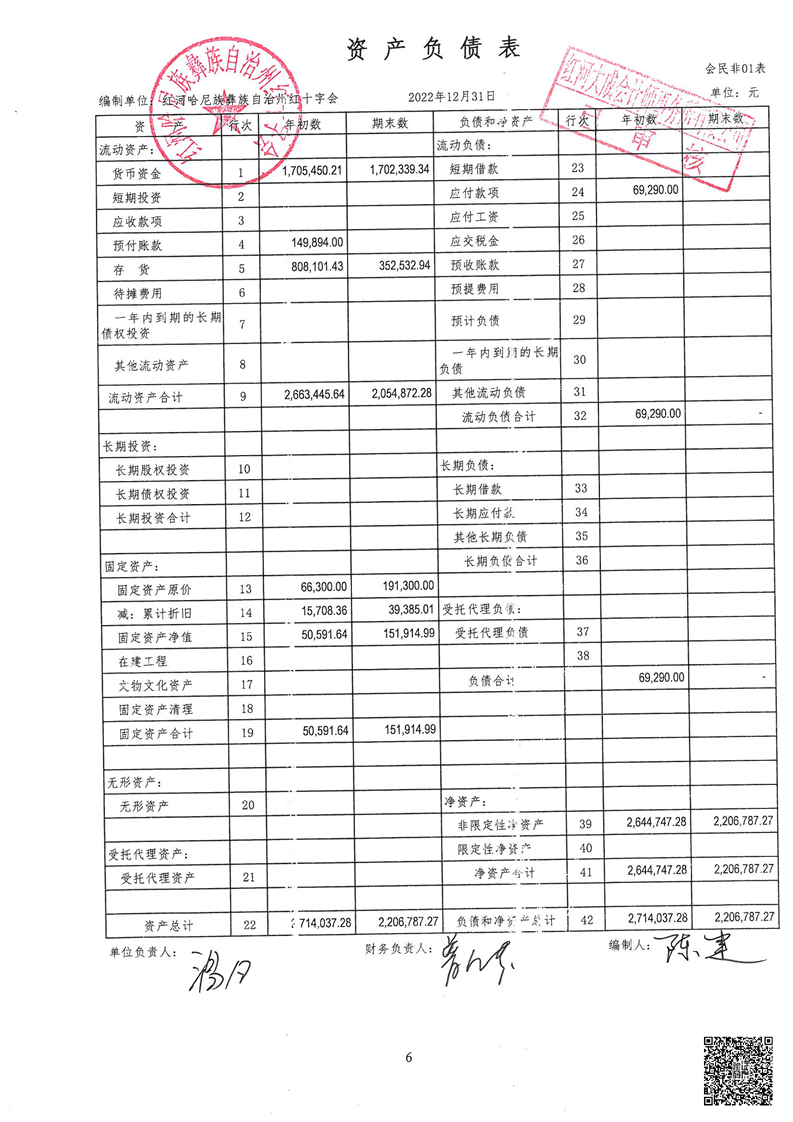 资产负债表
会民非01表
编制单位：红河哈尼族彝族自治州红十字会 2022年12月31日 单位：元
资 产 行次 年初数 期末数 负债和净资产 行次 年初数 期末数
流动资产： 流动负债：
货币资金 1 1,705,450.21 1,702,339.34 短期借款 23
短期投资 2 应付款项 24 69,290.00
应收款项 3 应付工资 25
预付账款 4 149,894.00 应交税金 26
存 货 5 808,101.43 352,532.94 预收账款 27
待摊费用 6 预提费用 28
一年内到期的长期债权投资 7 预计负债 29
其他流动资产 8 一年内到期的长期负债 30
流动资产合计 9 2,663,445.64 2,054,872.28 其他流动负债 31
流动负债合计 32 69,290.00 -
长期投资：
长期股权投资 10 长期负债：
长期债权投资 11 长期借款 33
长期投资合计 12 长期应付款 34
其他长期负债 35
固定资产： 长期负债合计 36
固定资产原价 13 66,300.00 191,300.00
减：累计折旧 14 15,708.36 39,385.01 受托代理负债：
固定资产净值 15 50,591.64 151,914.99 受托代理负债 37
在建工程 16 38
文物文化资产 17 负债合计 69,290.00 -
固定资产清理 18
固定资产合计 19 50,591.64 151,914.99
无形资产：
无形资产 20 净资产：
非限定性净资产 39 2,644,747.28 2,206,787.27
受托代理资产： 限定性净资产 40
受托代理资产 21 净资产合计 41 2,644,747.28 2,206,787.27
资产总计 22 2,714,037.28 2,206,787.27 负债和净资产总计 42 2,714,037.28 2,206,787.27
单位负责人： 财务负责人： 编制人：陈建
6